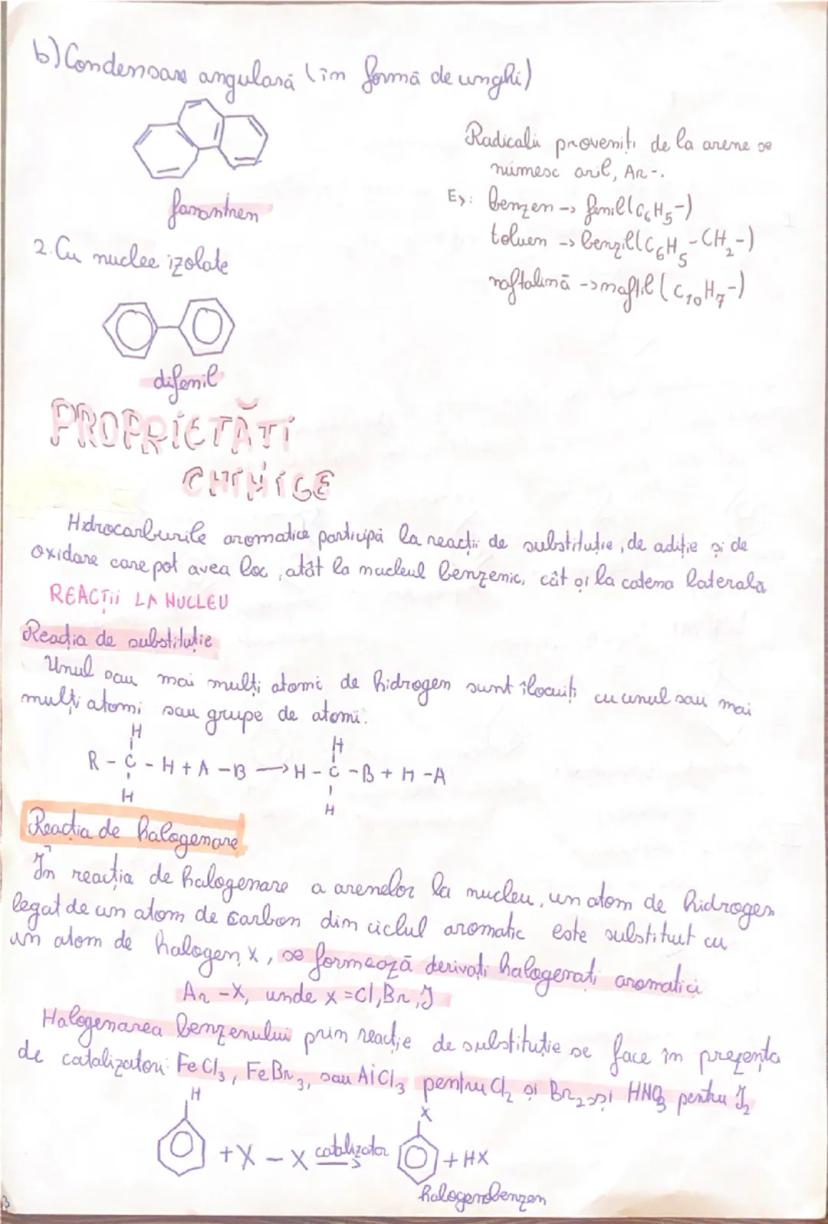 b) Condensare angulară (în formă de unghi)
fanantren
Radicalii proveniți de la arene se
numesc aril, Ar-.
Ex: benzen -> fenil (C6H5-)
toluen -> benzil (C6H5-CH2-)
naftalină -> naftil (C10H7-)
2. Cu nuclee izolate
difenil
PROPRIETĂȚI
CHIMICE
Hidrocarburile aromatice participă la reacții de substituție, de adiție și de
oxidare care pot avea loc, atât la nucleul benzenic, cât și la catena laterală
REACȚII LA NUCLEU
Reacția de substituție
Unul sau mai mulți atomi de hidrogen sunt îlocuiți cu unul sau mai
mulți atomi sau grupe de atomi.
H H
R - C - H + A - B → H - C - B + H - A
H H
Reacția de halogenare
În reacția de halogenare a arenelor la nucleu, un atom de hidrogen
legat de un atom de carbon din ciclul aromatic este substituit cu
un atom de halogen, X, se formează derivați halogenați aromatici
Ar - X, unde X = Cl, Br, I
Halogenarea benzenului prin reacție de substituție se face în prezența
de catalizatori: FeCl3, FeBr3, sau AiCl3 pentru Cl2 și Br2 și HNO3 pentru I2
H X
+ X - X catalizator → + HX
halogenobenzen